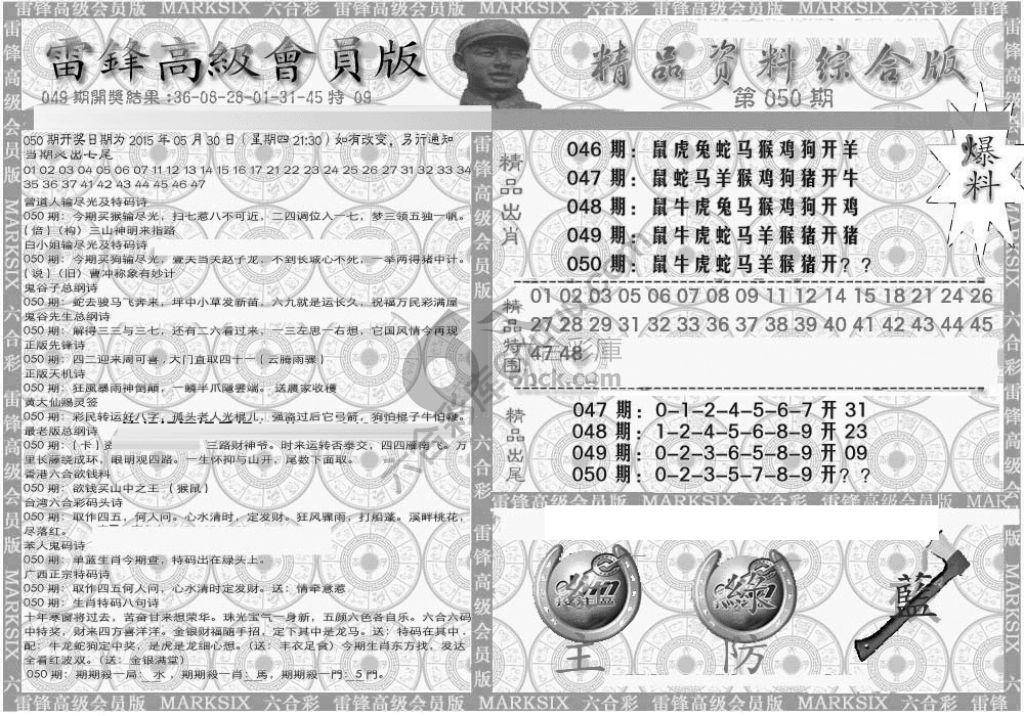 雷锋高级会员版 MARKSIX 六合彩 雷锋高级会员版 MARKSIX 六合彩 雷锋高级会员版 MARKSIX 六合彩 雷锋
雷鋒高級會員版
049 期開獎結果 :36-08-28-01-31-45 特 09
精品资料综合版
第 050 期
爆料
050 期开奖日期为 2015 年 05 月 30 日（星期四 21:30）如有改变，另行通知
当期必出七尾
01 02 03 04 05 06 07 11 12 13 14 15 16 17 21 22 23 24 25 26 27 31 32 33 34
35 36 37 41 42 43 44 45 46 47
曾道人输尽光及特码诗
050 期：今期买猴输尽光，扫七惹八不可近，二四调位入一七，梦三领五独一帆。
{倍}（构）三山神明来指路
白小姐输尽光及特码诗
050 期：今期买狗输尽光，壹夫当关赵子龙，不到长城心不死，一举两得猪中计。
{说}（旧）曹冲称象有妙计
鬼谷子总纲诗
050 期：蛇去骏马飞奔来，坪中小草发新苗，六九就是运长久，祝福万民彩满屋
鬼谷先生总纲诗
050 期：解得三三与三七，还有二六看过来，一三左思一右想，它国风情今再现
正版先锋诗
050 期：四二迎来周可喜，大门直取四十一{云腾雨骤}
正版天机诗
050 期：狂風暴雨神倒颠，一鳞半爪隱雲端。送農家收穫
黄大仙赐灵签
050 期：彩民转运好八字，孤头老人光棍儿，强盗过后它弓箭，狗怕棍子牛怕鞭。
最老版总纲诗
050 期：{卡} 三路财神爷。时来运转否泰交，四四雁南飞。万
里长藤绕成环，眼明观四路。一生怀抑与山开，尾数下面取。
香港六合欲钱料
050 期：欲钱买山中之王 {猴鼠}
台湾六合彩码头诗
050 期：取作四五，何人问。心水清时，定发财。狂风骤雨，打船蓬。溪畔桃花，
尽落红。
苯人鬼码诗
050 期：单蓝生肖今期查，特码出在绿头上。
广西正宗特码诗
050 期：取作四五何人问，心水清时定发财。送：情牵意惹
050 期：生肖特码八句诗
十年寒窗将过去，苦奋甘来想荣华。珠光宝气一身新，五颜六色各自乐。六合六码
中特奖，财来四方喜洋洋。金银财福随手招，定下其中是龙马。送：特码在其中．
配：牛龙蛇狗定中奖，是虎是龙细心想。（送：丰衣足食）今期生肖东方找，发达
全看红波双。（送：金银满堂）
050 期：期期殺一局：水，期期殺一肖：馬，期期殺一門：5 門。
精品出肖
046 期：鼠虎兔蛇马猴鸡狗开羊
047 期：鼠蛇马羊猴鸡狗猪开牛
048 期：鼠牛虎兔马猴鸡狗开鸡
049 期：鼠牛虎蛇马羊猴猪开猪
050 期：鼠牛虎蛇马羊猴猪开？？
精品特围
01 02 03 05 06 07 08 09 11 12 14 15 18 21 24 26
27 28 29 31 32 33 36 37 38 39 40 41 42 43 44 45
47 48
精品出尾
047 期：0-1-2-4-5-6-7 开 31
048 期：1-2-4-5-6-8-9 开 23
049 期：0-2-3-5-6-8-9 开 09
050 期：0-2-3-5-7-8-9 开？？
雷锋高级会员版 MARKSIX 六合彩 雷锋高级会员版 MARKSIX
綠
藍
主
防
雷锋高级会员版 MARKSIX 六合彩 雷锋高级会员版 MARKSIX 六合彩 雷锋高级会员版 MARKSIX 六合彩 雷锋